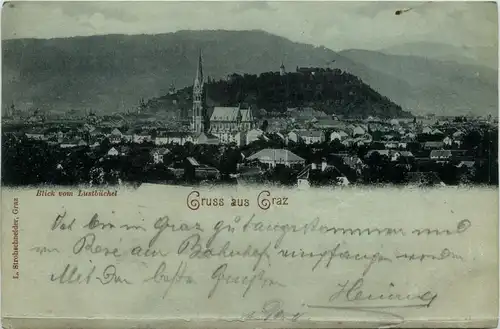 Blick vom Lustbüchel
Gruss aus Graz
L. Strohschneider, Graz
bin in Graz gut angekommen und
von Rosi am Bahnhof empfangen worden.
Mit besten Grüßen